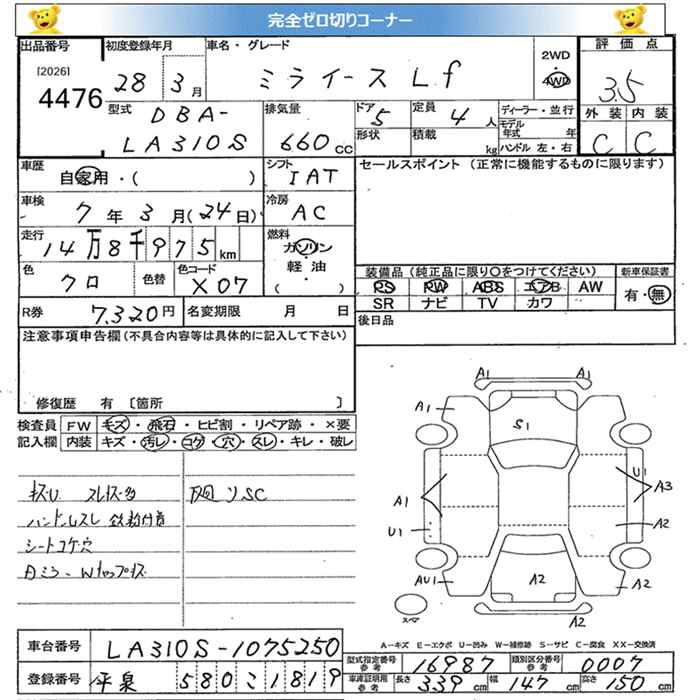 完全ゼロ切りコーナー
出品番号 初度登録年月 車名・グレード 評価点
[2026] 4476 28 3月 ミライース Lf 2WD 4WD 3.5
型式 DBA-LA310S 排気量 660cc ドア 5 定員 4人 ディーラー・並行
形状 積載 kg モデル年式 年 ハンドル 左・右
外装 内装
C C
車歴 自家用・( ) シフト IAT セールスポイント (正常に機能するものに限ります)
車検 7年3月(24日) 冷房 AC
走行 14万8千975km 燃料 ガソリン
軽油
( )
色 クロ 色替 色コード X07
装備品 (純正品に限り○をつけてください) 新車保証書
PS PW ABS エアB AW 有・無
SR ナビ TV カワ
R券 7,320円 名変期限 月 日 後日品
注意事項申告欄 (不具合内容等は具体的に記入して下さい)
修復歴 有 〔箇所 〕
検査員 FW キズ・飛石・ヒビ割・リペア跡・×要
記入欄 内装 キズ・汚レ・コゲ・穴・スレ・キレ・破レ
キズU スレキズ多 下廻リSC
ハンドルスレ 鉄粉付着
シートコゲ穴
A1 A1
A1
S1
U1
A1 A3
U1 A2
AU1 A2 A2
スペア A2
A-キズ E-エクボ U-凹み W-補修跡 S-サビ C-腐食 XX-交換済
車台番号 LA310S-1075250
型式指定番号 参考 16987 類別区分番号 参考 0007
登録番号 平泉 580こ1819
車庫証明用 参考 長さ 339cm 幅 147cm 高さ 150cm